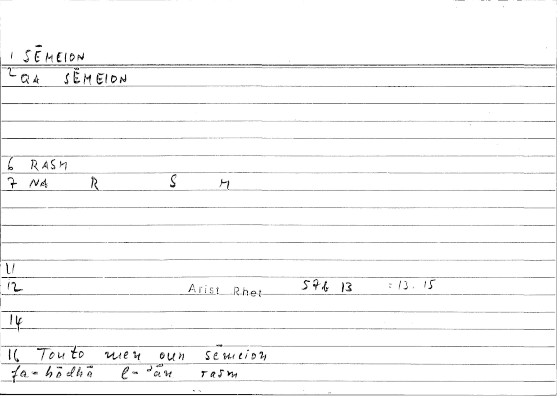 1 SĒMEION
2 QA SĒMEION
6 RASM
7 NA R S M
11
12 Arist Rhet 57b 13 :13.15
14
16 Touto men oun sēmeion
fa-hādhā l-ʾān rasm